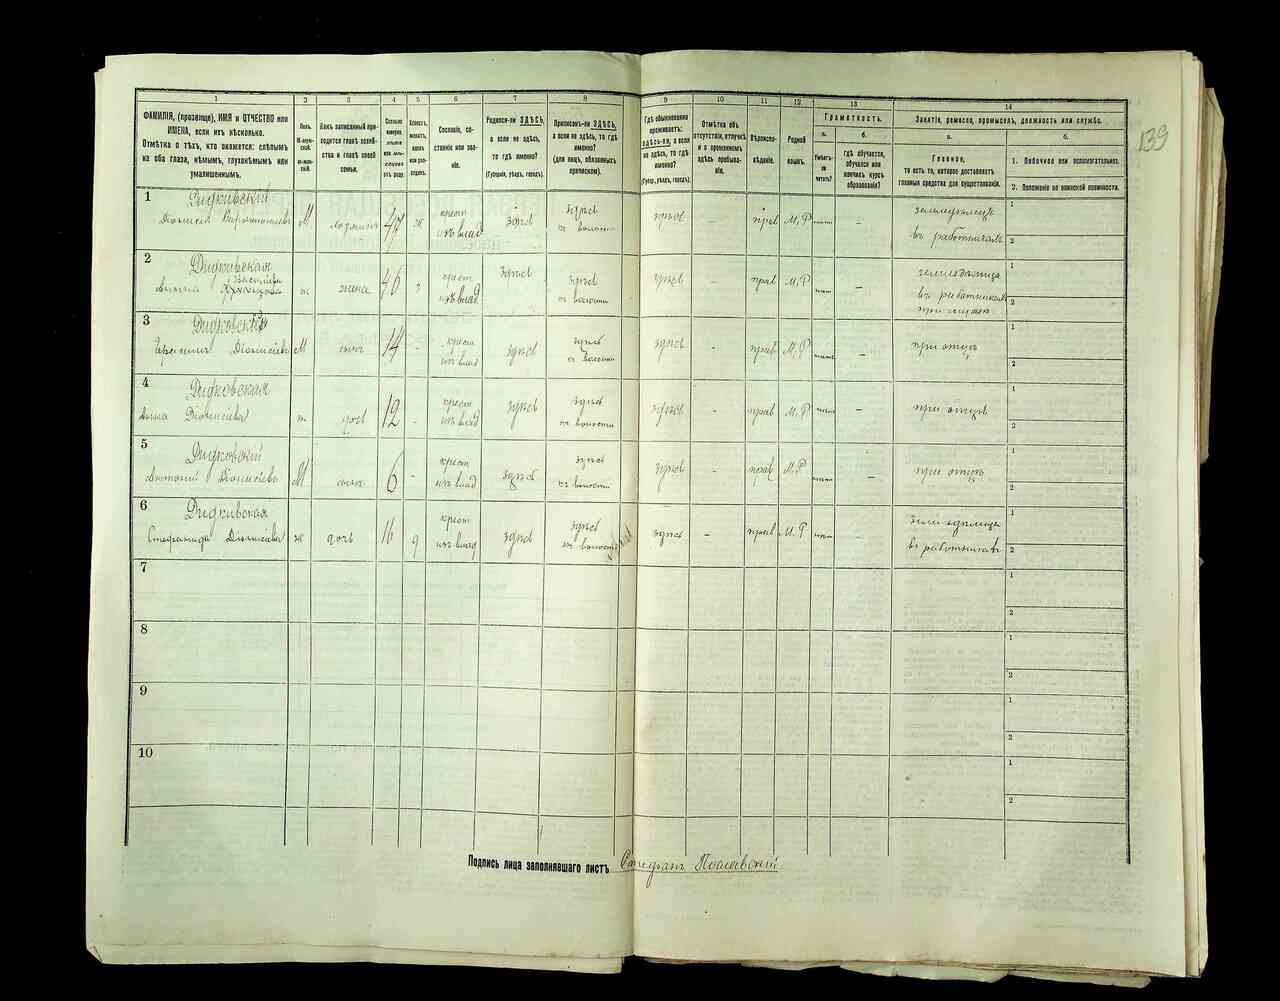 139
1 2 3 4 5 6 7 8 9 10 11 12 13 14
ФАМИЛІЯ, (прозвище), ИМЯ и ОТЧЕСТВО или
ИМЕНА, если ихъ нѣсколько.
Отмѣтка о тѣхъ, кто окажется: слѣпымъ
на оба глаза, нѣмымъ, глухонѣмымъ или
умалишеннымъ.
Полъ.
Какъ записанный при-
ходится главѣ хозяй-
ства и главѣ своей
семьи.
Сколько
Сословіе, со-
стояніе или зва-
ніе.
Родился-ли ЗДѢСЬ,
а если не здѣсь,
то гдѣ именно?
(Губернія, уѣздъ, городъ).
Приписанъ-ли ЗДѢСЬ,
а если не здѣсь, то гдѣ
именно?
(для лицъ, обязанныхъ
припискою).
Гдѣ обыкновенно
проживаетъ:
здѣсь-ли, а если
не здѣсь, то гдѣ
именно?
(Губер., уѣздъ, городъ).
Отмѣтка объ
отсутствіи, отлучкѣ
и о временномъ
здѣсь пребыва-
ніи.
Вѣроиспо-
вѣданіе.
Родной
языкъ.
Грамотность.
а.
Умѣетъ-
ли
читать?
б.
гдѣ обучается,
обучался или
кончилъ курсъ
образованія?
Занятіе, ремесло, промыселъ, должность или служба.
а.
Главное,
то есть то, которое доставляетъ
главныя средства для существованія.
б.
1. Побочное или вспомогательное.
2. Положеніе по воинской повинности.
1 Дидковскій
М 47 крест изъ влад здѣсь здѣсь къ волости здѣсь прав М.Р - земледѣлецъ
въ работникахъ
1
2
2 Дидковская
ж жена 46 крест изъ влад здѣсь здѣсь къ волости здѣсь прав М.Р - 
въ работникахъ
1
2
3
М сынъ 14 - крест изъ влад здѣсь здѣсь къ волости здѣсь - прав М.Р - при отцѣ
1
2
4 Дидковская
Анна Діонисіева ж дочь 12 - крест изъ влад здѣсь здѣсь къ волости здѣсь - прав М.Р - при отцѣ
1
2
5 Дидковскій
Антоній Діонисіевъ М сынъ 6 - крест изъ влад здѣсь здѣсь къ волости здѣсь - прав М.Р - при отцѣ
1
2
6 Дидковская
Стефанида Діонисіева ж дочь 16 д крест изъ влад здѣсь здѣсь къ волости здѣсь - прав М.Р - 
въ работникахъ
1
2
7
1
2
8
1
2
9
1
2
10
1
2
Подпись лица заполнявшаго листъ Стефанъ